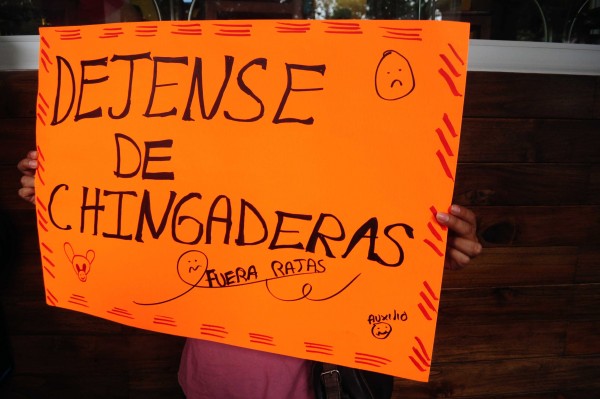 DEJENSE
DE
CHINGADERAS
FUERA RAJAS
AUXILIO